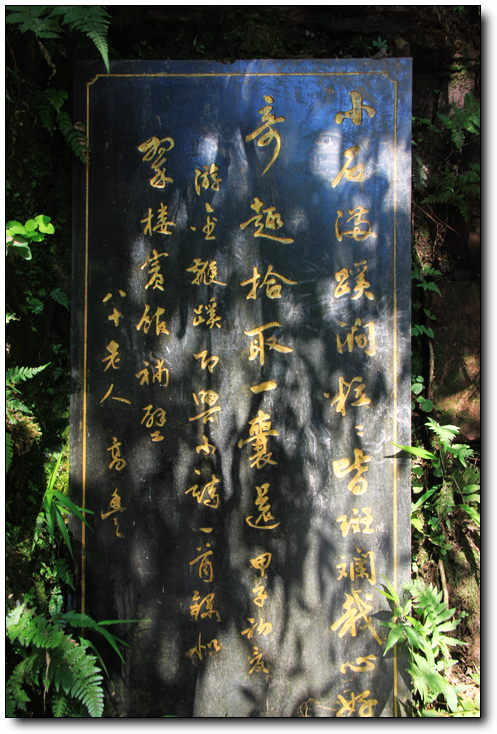 小石满蹊涧粒々皆斑斓我心好
奇趣拾取一囊还 甲子初夏
游金鞭蹊即兴小诗一首录如
翠楼宾馆补壁
八十老人 高